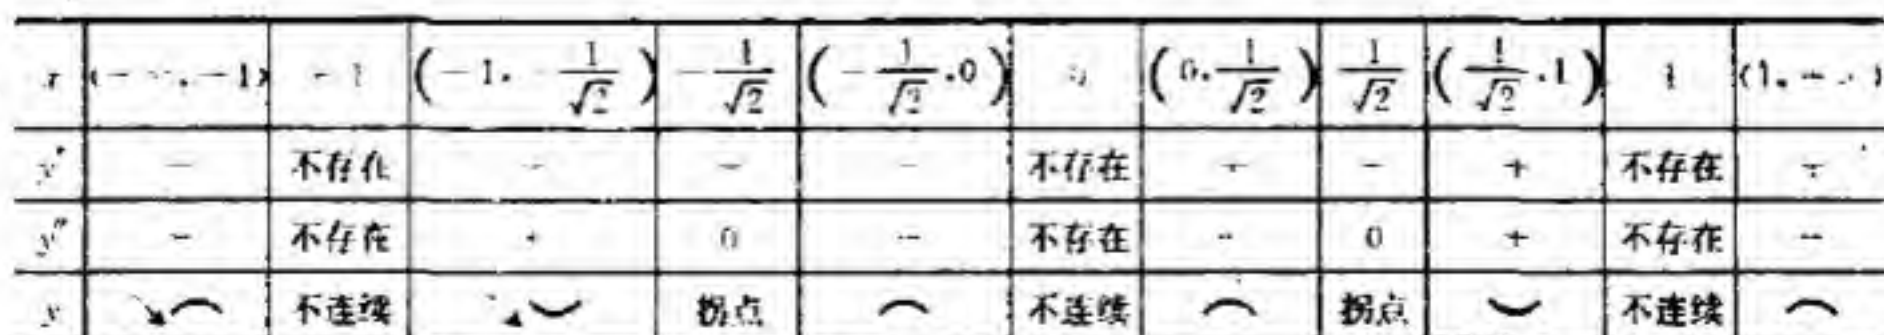 x (−∞,−1) −1 (−1,−1/√2) −1/√2 (−1/√2,0) 0 (0,1/√2) 1/√2 (1/√2,1) 1 (1,+∞)
y′ − 不存在 − − − 不存在 + + 不存在 +
y″ − 不存在 + 0 − 不存在 − 0 + 不存在 −
y 不连续 拐点 不连续 拐点 不连续